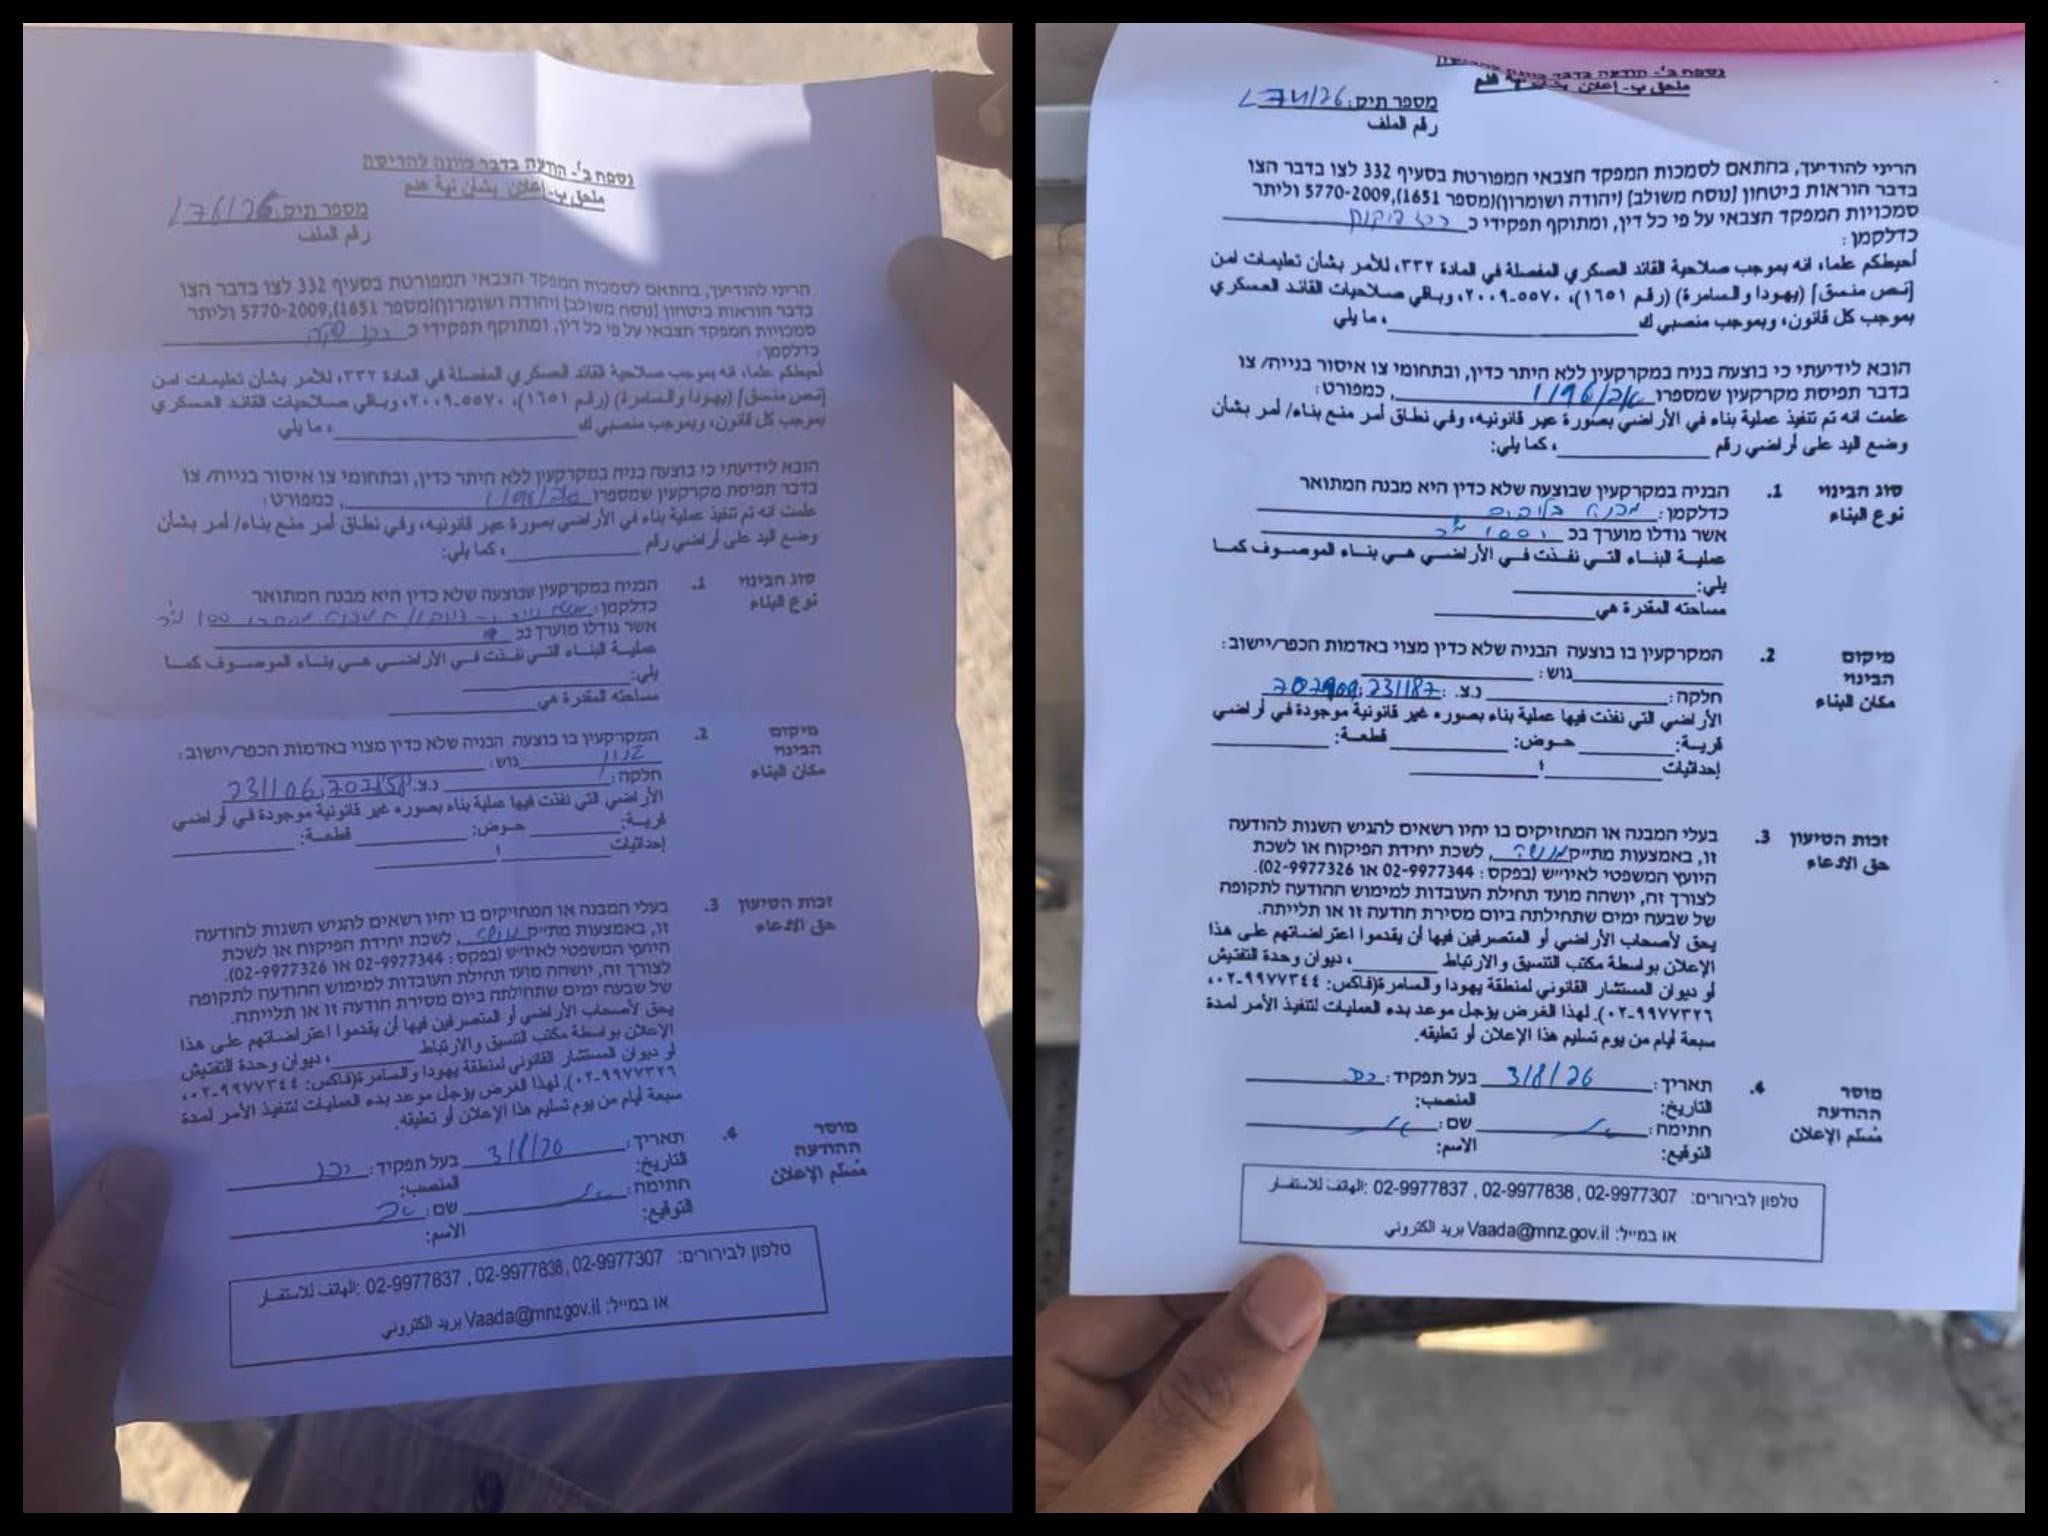 נספח ב'- הודעה בדבר כוונה להריסה
ملحق ب- إعلان بشأن نية هدم
מספר תיק:
رقم الملف
הריני להודיעך, בהתאם לסמכות המפקד הצבאי המפורטת בסעיף 332 לצו בדבר הצו
בדבר הוראות ביטחון [נוסח משולב] (יהודה ושומרון)(מספר 1651),5770-2009 וליתר
סמכויות המפקד הצבאי על פי כל דין, ומתוקף תפקידי כ
כדלקמן:
أحيطكم علما، انه بموجب صلاحية القائد العسكري المفصلة في المادة ٣٣٢، للأمر بشأن تعليمات امن
[نص منسق] (يهودا والسامرة) (رقم ١٦٥١)، ٥٥٧٠-٢٠٠٩، وباقي صلاحيات القائد العسكري
بموجب كل قانون، وبموجب منصبي ك ، ما يلي
הובא לידיעתי כי בוצעה בניה במקרקעין ללא היתר כדין, ובתחומי צו איסור בנייה/ צו
בדבר תפיסת מקרקעין שמספרו 1/96 , כמפורט:
علمت انه تم تنفيذ عملية بناء في الأراضي بصورة غير قانونيه، وفي نطاق أمر منع بناء/ أمر بشأن
وضع اليد على أراضي رقم ، كما يلي:
סוג הבינוי
نوع البناء
1. הבניה במקרקעין שבוצעה שלא כדין היא מבנה המתואר
כדלקמן:
אשר גודלו מוערך בכ
عملية البناء التي نفذت في الأراضي هي بناء الموصوف كما
يلي:
مساحته المقدرة هي
מיקום
הבינוי
مكان البناء
2. המקרקעין בו בוצעה הבניה שלא כדין מצוי באדמות הכפר/יישוב:
גוש:
חלקה: נ.צ. 231106, 707858
الأراضي التي نفذت فيها عملية بناء بصوره غير قانونية موجودة في أراضي
قرية: حوض: قطعة:
إحداثيات
זכות הטיעון
حق الادعاء
3. בעלי המבנה או המחזיקים בו יהיו רשאים להגיש השגות להודעה
זו, באמצעות מת"ק מנשה, לשכת יחידת הפיקוח או לשכת
היועץ המשפטי לאיו"ש (בפקס: 02-9977344 או 02-9977326).
לצורך זה, יושהה מועד תחילת העובדות למימוש ההודעה לתקופה
של שבעה ימים שתחילתה ביום מסירת הודעה זו או תלייתה.
يحق لأصحاب الأراضي أو المتصرفين فيها أن يقدموا اعتراضاتهم على هذا
الإعلان بواسطة مكتب التنسيق والارتباط ، ديوان وحدة التفتيش
أو ديوان المستشار القانوني لمنطقة يهودا والسامرة(فاكس: ٩٩٧٧٣٤٤-٠٢،
٩٩٧٧٣٢٦-٠٢). لهذا الغرض يؤجل موعد بدء العمليات لتنفيذ الأمر لمدة
سبعة أيام من يوم تسليم هذا الإعلان أو تعليقه.
מוסר
ההודעה
مُسلّم الإعلان
4. תאריך: 3/8/26 בעל תפקיד:
التاريخ: المنصب:
חתימה: שם:
التوقيع: الاسم:
טלפון לבירורים: 02-9977307 ,02-9977838 , 02-9977837 :الهاتف للاستفسار
או במייל: Vaada@mnz.gov.il بريد الكتروني
נספח ב'- הודעה בדבר כוונה להריסה
ملحق ب- إعلان بشأن نية هدم
מספר תיק:
رقم الملف
הריני להודיעך, בהתאם לסמכות המפקד הצבאי המפורטת בסעיף 332 לצו בדבר הצו
בדבר הוראות ביטחון [נוסח משולב] (יהודה ושומרון)(מספר 1651),5770-2009 וליתר
סמכויות המפקד הצבאי על פי כל דין, ומתוקף תפקידי כ רכז פיקוח
כדלקמן:
أحيطكم علما، انه بموجب صلاحية القائد العسكري المفصلة في المادة ٣٣٢، للأمر بشأن تعليمات امن
[نص منسق] (يهودا والسامرة) (رقم ١٦٥١)، ٥٥٧٠-٢٠٠٩، وباقي صلاحيات القائد العسكري
بموجب كل قانون، وبموجب منصبي ك ، ما يلي
הובא לידיעתי כי בוצעה בניה במקרקעין ללא היתר כדין, ובתחומי צו איסור בנייה/ צו
בדבר תפיסת מקרקעין שמספרו 1/96 , כמפורט:
علمت انه تم تنفيذ عملية بناء في الأراضي بصورة غير قانونيه، وفي نطاق أمر منع بناء/ أمر بشأن
وضع اليد على أراضي رقم ، كما يلي:
סוג הבינוי
نوع البناء
1. הבניה במקרקעין שבוצעה שלא כדין היא מבנה המתואר
כדלקמן: מבנה
אשר גודלו מוערך בכ
عملية البناء التي نفذت في الأراضي هي بناء الموصوف كما
يلي:
مساحته المقدرة هي
מיקום
הבינוי
مكان البناء
2. המקרקעין בו בוצעה הבניה שלא כדין מצוי באדמות הכפר/יישוב:
גוש:
חלקה: נ.צ. : 231187
الأراضي التي نفذت فيها عملية بناء بصوره غير قانونية موجودة في أراضي
قرية: حوض: قطعة:
إحداثيات
זכות הטיעון
حق الادعاء
3. בעלי המבנה או המחזיקים בו יהיו רשאים להגיש השגות להודעה
זו, באמצעות מת"ק מנשה, לשכת יחידת הפיקוח או לשכת
היועץ המשפטי לאיו"ש (בפקס: 02-9977344 או 02-9977326).
לצורך זה, יושהה מועד תחילת העובדות למימוש ההודעה לתקופה
של שבעה ימים שתחילתה ביום מסירת הודעה זו או תלייתה.
يحق لأصحاب الأراضي أو المتصرفين فيها أن يقدموا اعتراضاتهم على هذا
الإعلان بواسطة مكتب التنسيق والارتباط ، ديوان وحدة التفتيش
أو ديوان المستشار القانوني لمنطقة يهودا والسامرة(فاكس: ٩٩٧٧٣٤٤-٠٢،
٩٩٧٧٣٢٦-٠٢). لهذا الغرض يؤجل موعد بدء العمليات لتنفيذ الأمر لمدة
سبعة أيام من يوم تسليم هذا الإعلان أو تعليقه.
מוסר
ההודעה
مُسلّم الإعلان
4. תאריך: 3/8/26 בעל תפקיד:
التاريخ: المنصب:
חתימה: שם:
التوقيع: الاسم:
טלפון לבירורים: 02-9977307 ,02-9977838 , 02-9977837 :الهاتف للاستفسار
או במייל: Vaada@mnz.gov.il بريد الكتروني